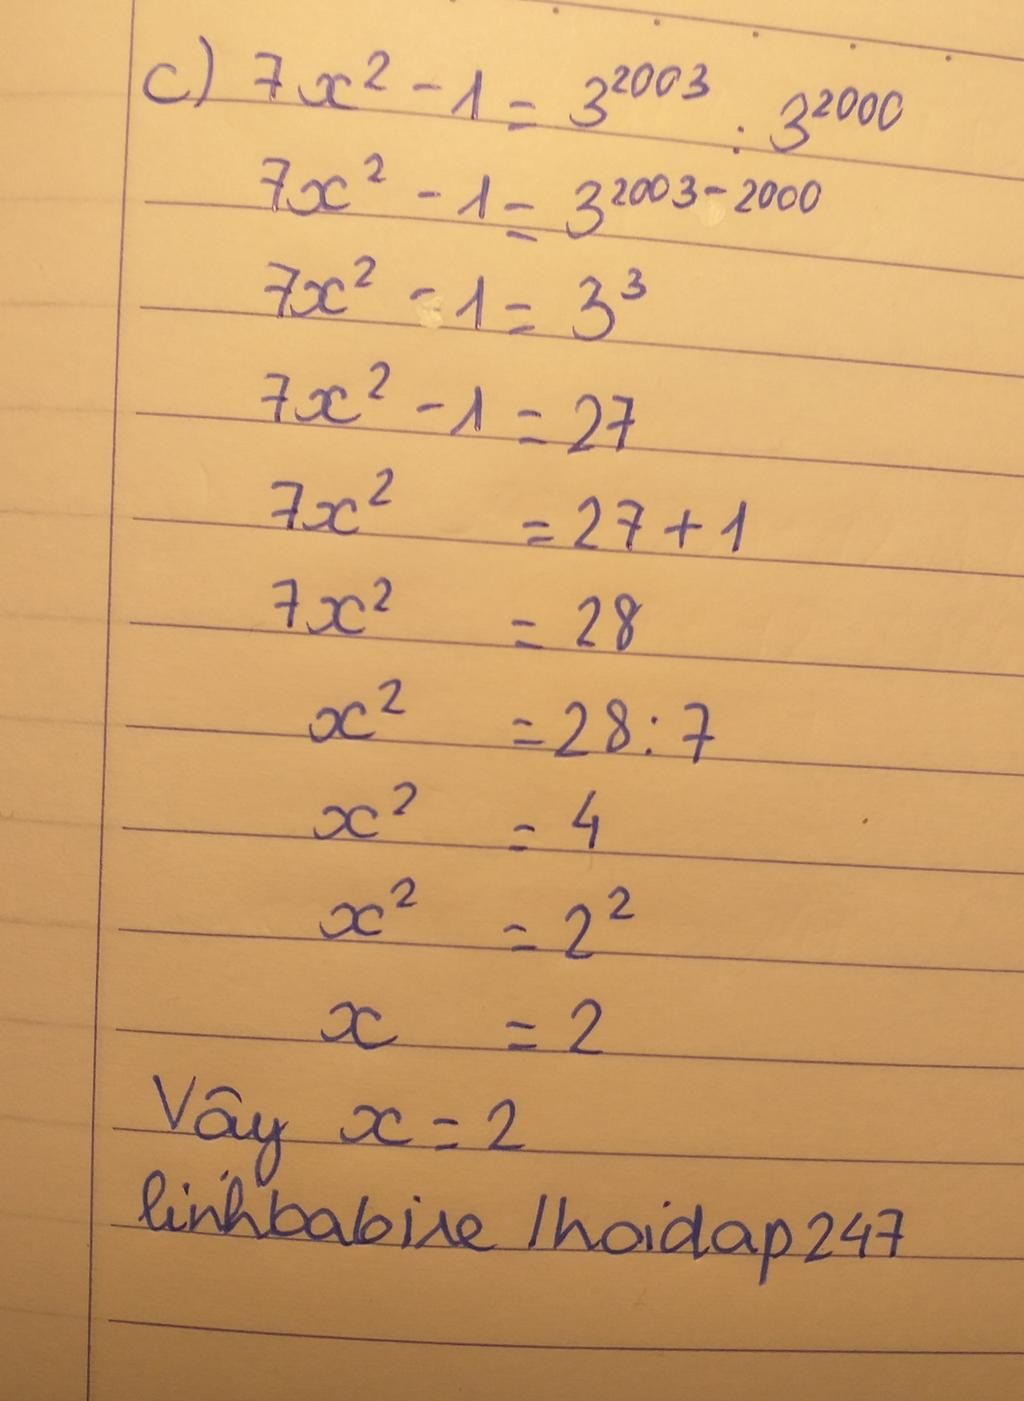 c) 7x² - 1 = 3²⁰⁰³ : 3²⁰⁰⁰
7x² - 1 = 3²⁰⁰³⁻²⁰⁰⁰
7x² - 1 = 3³
7x² - 1 = 27
7x² = 27 + 1
7x² = 28
x² = 28 : 7
x² = 4
x² = 2²
x = 2
Vây x = 2
/hoidap247